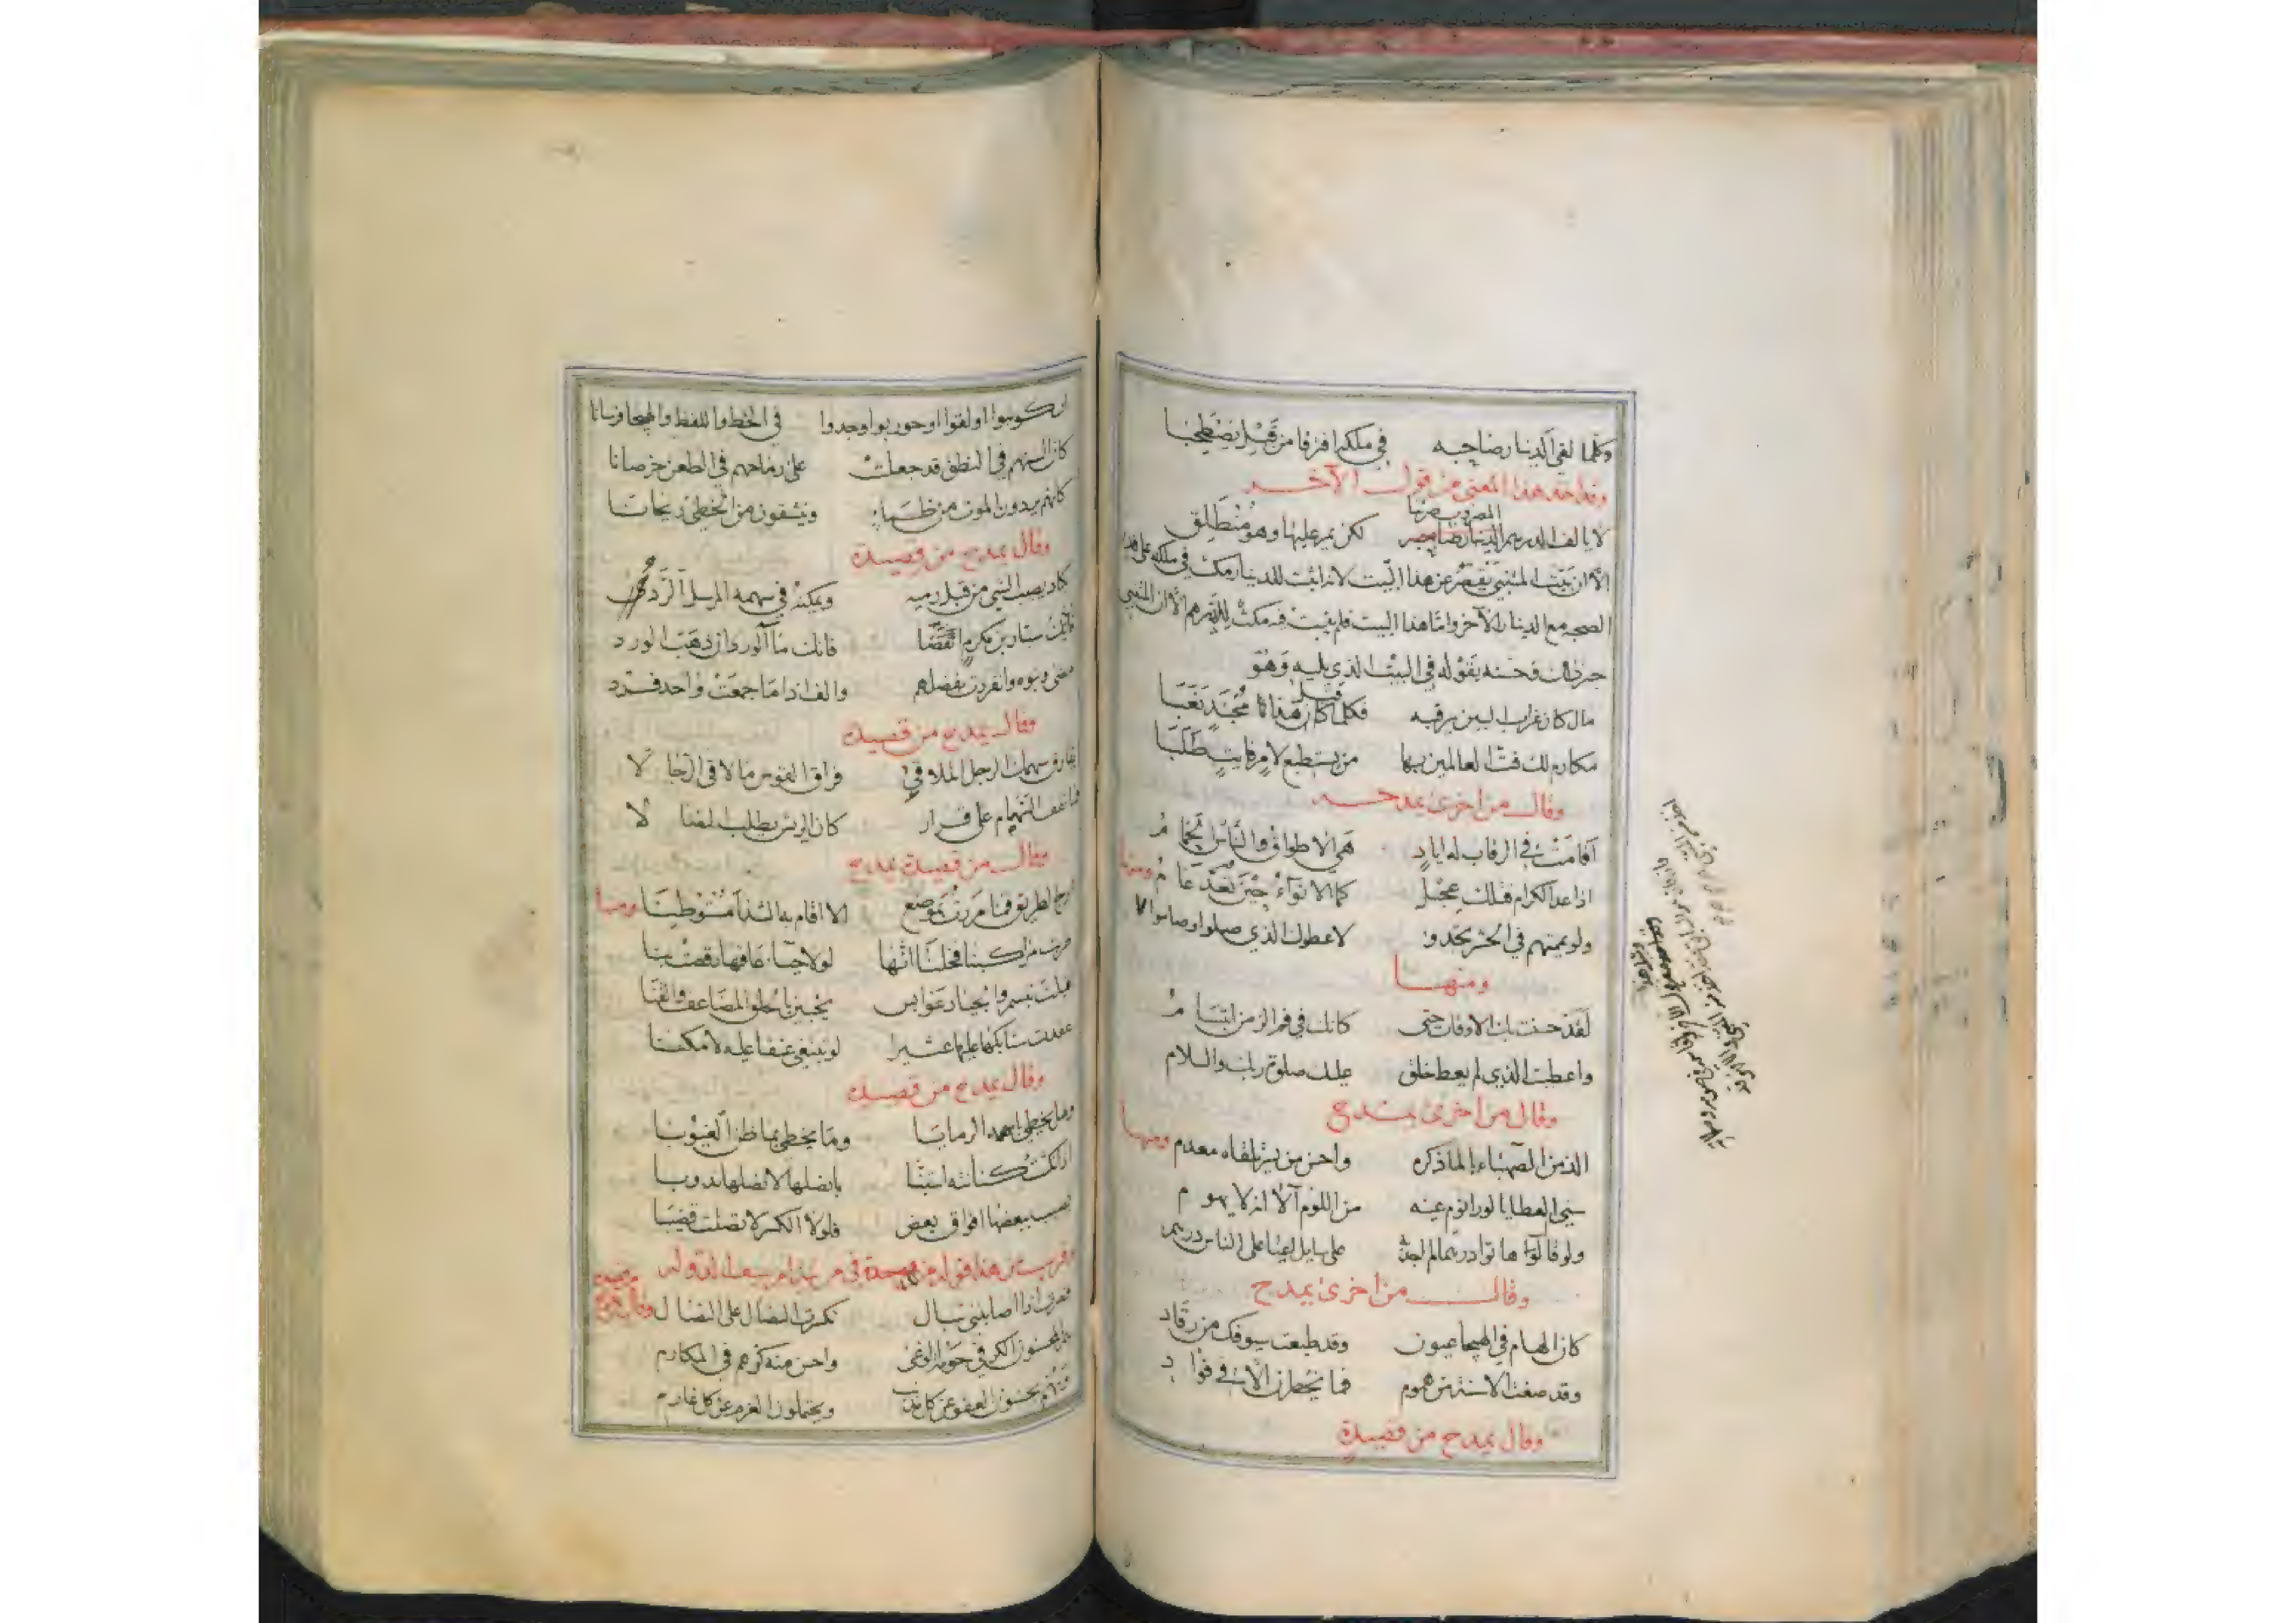 وكلما لقي الدينار صاحبه في ملكه افترقا من قبل يصطحبا
وقد اخذ هذا المعنى من قول الآخر
لا يالف الدرهم المضروب صرتنا لكن يمر عليها وهو منطلق
الا ان بيت المتنبي يقصر عن هذا البيت لانه اثبت للدينار مكث في ملكه على قدر
الصحبه مع الدينار الآخر واما هذا البيت فلم يثبت فيه مكث للدرهم الا ان المتنبي
جبر ذلك وحسنه بقوله في البيت الذي يليه وهو
مال كان غراب البين يرقبه فكلما قيل هذا مجتد نعبا
مكارم لك فت العالمين بها من يستطيع لامر فايت طلبا
وقال من اخرى يمدحه
اقامت في الرقاب له اياد هي الاطواق والناس الحمام
اذا عد الكرام فتلك عجل كما الانواء حين تعد عام ومنها
ولو يممتهم في الحشر تجدو لاعطوك الذي صلوا وصاموا
ومنها
لقد حسنت بك الاوقات حتى كانك في فم الزمن ابتسام
واعطيت الذي لم يعط خلق عليك صلوة ربك والسلام
وقال من اخرى يمدح
الذ من الصهباء بالماء ذكره واحسن من يسر تلقاه معدم ومنها
سني العطايا لو راى نوم عينه من اللؤم آلا انه لا يهوم
ولو قال هاتوا درهما لم اجد به على سايل اعيا على الناس درهم
وقال من اخرى يمدح
كان الهام في الهيجا عيون وقد طبعت سيوفك من رقاد
وقد صغت الاسنة من هموم فما يخطرن الا في فؤاد
وقال يمدح من قصيدة
ان كوتبوا او لقوا او حوربوا وجدوا في الخط واللفظ والهيجا فرسانا
كان السنهم في النطق قد جعلت على رماحهم في الطعن خرصانا
كانهم يردون الموت من ظماء وينشقون من الخطي ريحانا
وقال يمدح من قصيدة
كاد يصيب الشي من قبل رميه ويمكنه في سهمه المرسل الرد
فان يك سيار بن مكرم انقضا فانك ماء الورد ان ذهب الورد
مضى وبنوه وانفردت بفضلهم والف اذا ما جمعت واحد فرد
وقال يمدح من قصيدة
يفارق سهمك الرجل الملاقي فراق القوس ما لاقى الرجالا
فما تقف السهام على قرار كان الريش يطلب النصالا
وقال من قصيدة يمدح
ارج الطريق فما مررت بموضع الا اقام به الشذا مستوطنا ومنها
طربت مراكبنا فخلنا انها لولا حياء عاقها رقصت بنا
اقبلت تبسم والجياد عوابس يخببن بالحلق المضاعف والقنا
عقدت سنابكها عليها عثيرا لو تبتغي عنقا عليه لامكنا
وقال يمدح من قصيدة
الرمايا وما يخطي بما ظن الغيوبا
اذا نكثت كنانته استبنا بانصلها لانصلها ندوبا
يصيب ببعضها افواق بعض فلولا الكسر لاتصلت قضيبا
فصرت اذا اصابتني نبال تكسرت النصال على النصال
المحسنون الكر في حومة الوغى واحسن منه كرهم في المكارم
يحسنون العفو عن كل مذنب ويحتملون الغرم عن كل غارم